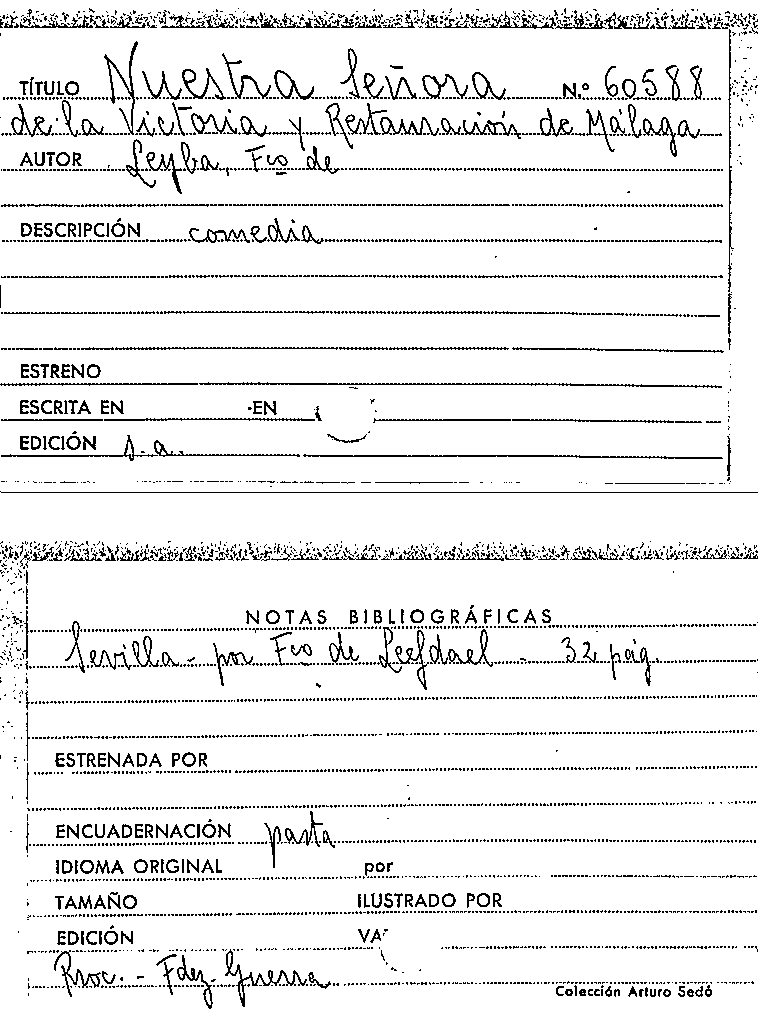 TÍTULO Nuestra Señora N.º 60588
de la Victoria y Restauración de Málaga
AUTOR Leyba, Fco de
DESCRIPCIÓN comedia
ESTRENO
ESCRITA EN EN
EDICIÓN s.a.
NOTAS BIBLIOGRÁFICAS
Sevilla - por Fco de Leefdael - 32 pág.
ESTRENADA POR
ENCUADERNACIÓN pasta
IDIOMA ORIGINAL por
TAMAÑO ILUSTRADO POR
EDICIÓN VA
Proc. - Fdez-Guerra
Colección Arturo Sedó